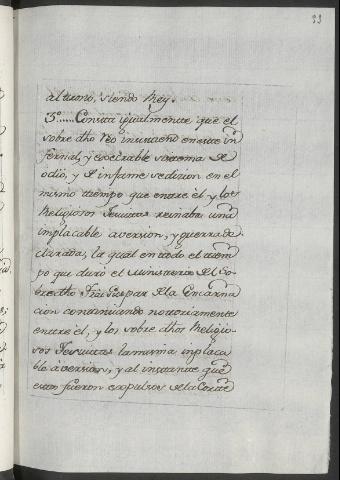 33
al trono, siendo Rey.
5º..... Consta igualmente que el
sobre dho Reo insistiendo en este in
fernal, y execrable sistema de
odio, y de infame sedicion en el
mismo tiempo que entre él y los
Religiosos Jesuitas reinaba una
implacable aversion, y guerra de
clarada, la qual en todo el tiem
po que duró el Ministerio del So
bre dho Frai Gaspar de la Encarna
cion continuando notoriamente
entre él, y los sobre dhos Religio
sos Jesuitas la misma implaca
ble aversion, y al instante que
estos fueron expulsos de la Corte